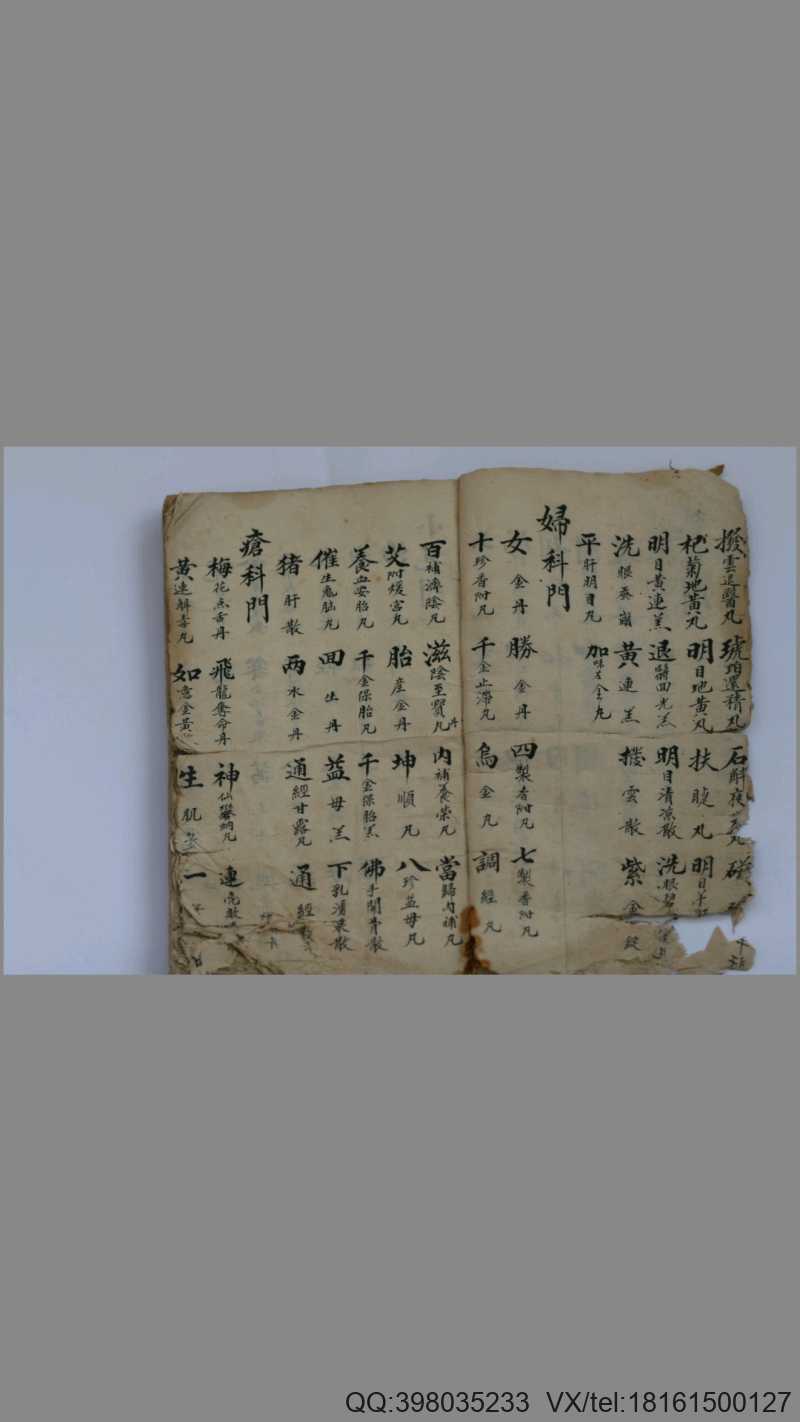 撥雲退醫丸 琥珀還精丸 石斛夜丸 磁
杞菊地黃丸 明目地黃丸 扶睫丸 明目羊肝
明目黃連羔 退醫回光羔 明目清凉散 洗眼
洗眼蚕 黃連羔 撥雲散 紫金錠
平肝明目丸 加味左金丸
婦科門
女金丹 勝金丹 四製香附凡 七製香附凡
十珍香附凡 千金止滯凡 烏金凡 調經凡
百補濟陰凡 滋陰至寶凡丹 內補養榮凡 當歸內補凡
艾附煖宮凡 胎産金丹 坤順凡 八珍益母凡
養血安胎凡 千金保胎凡 千金保胎羔 佛手開骨散
催生兎腦凡 回生丹 益母羔 下乳湧泉散
猪肝散 兩水金丹 通經甘露凡 通經
瘡科門
梅花点舌丹 飛龍奪命丹 神仙蟾蜍凡 連壳散
黃連解毒凡 如意金黃 生肌 一
QQ:398035233 VX/tel:18161500127